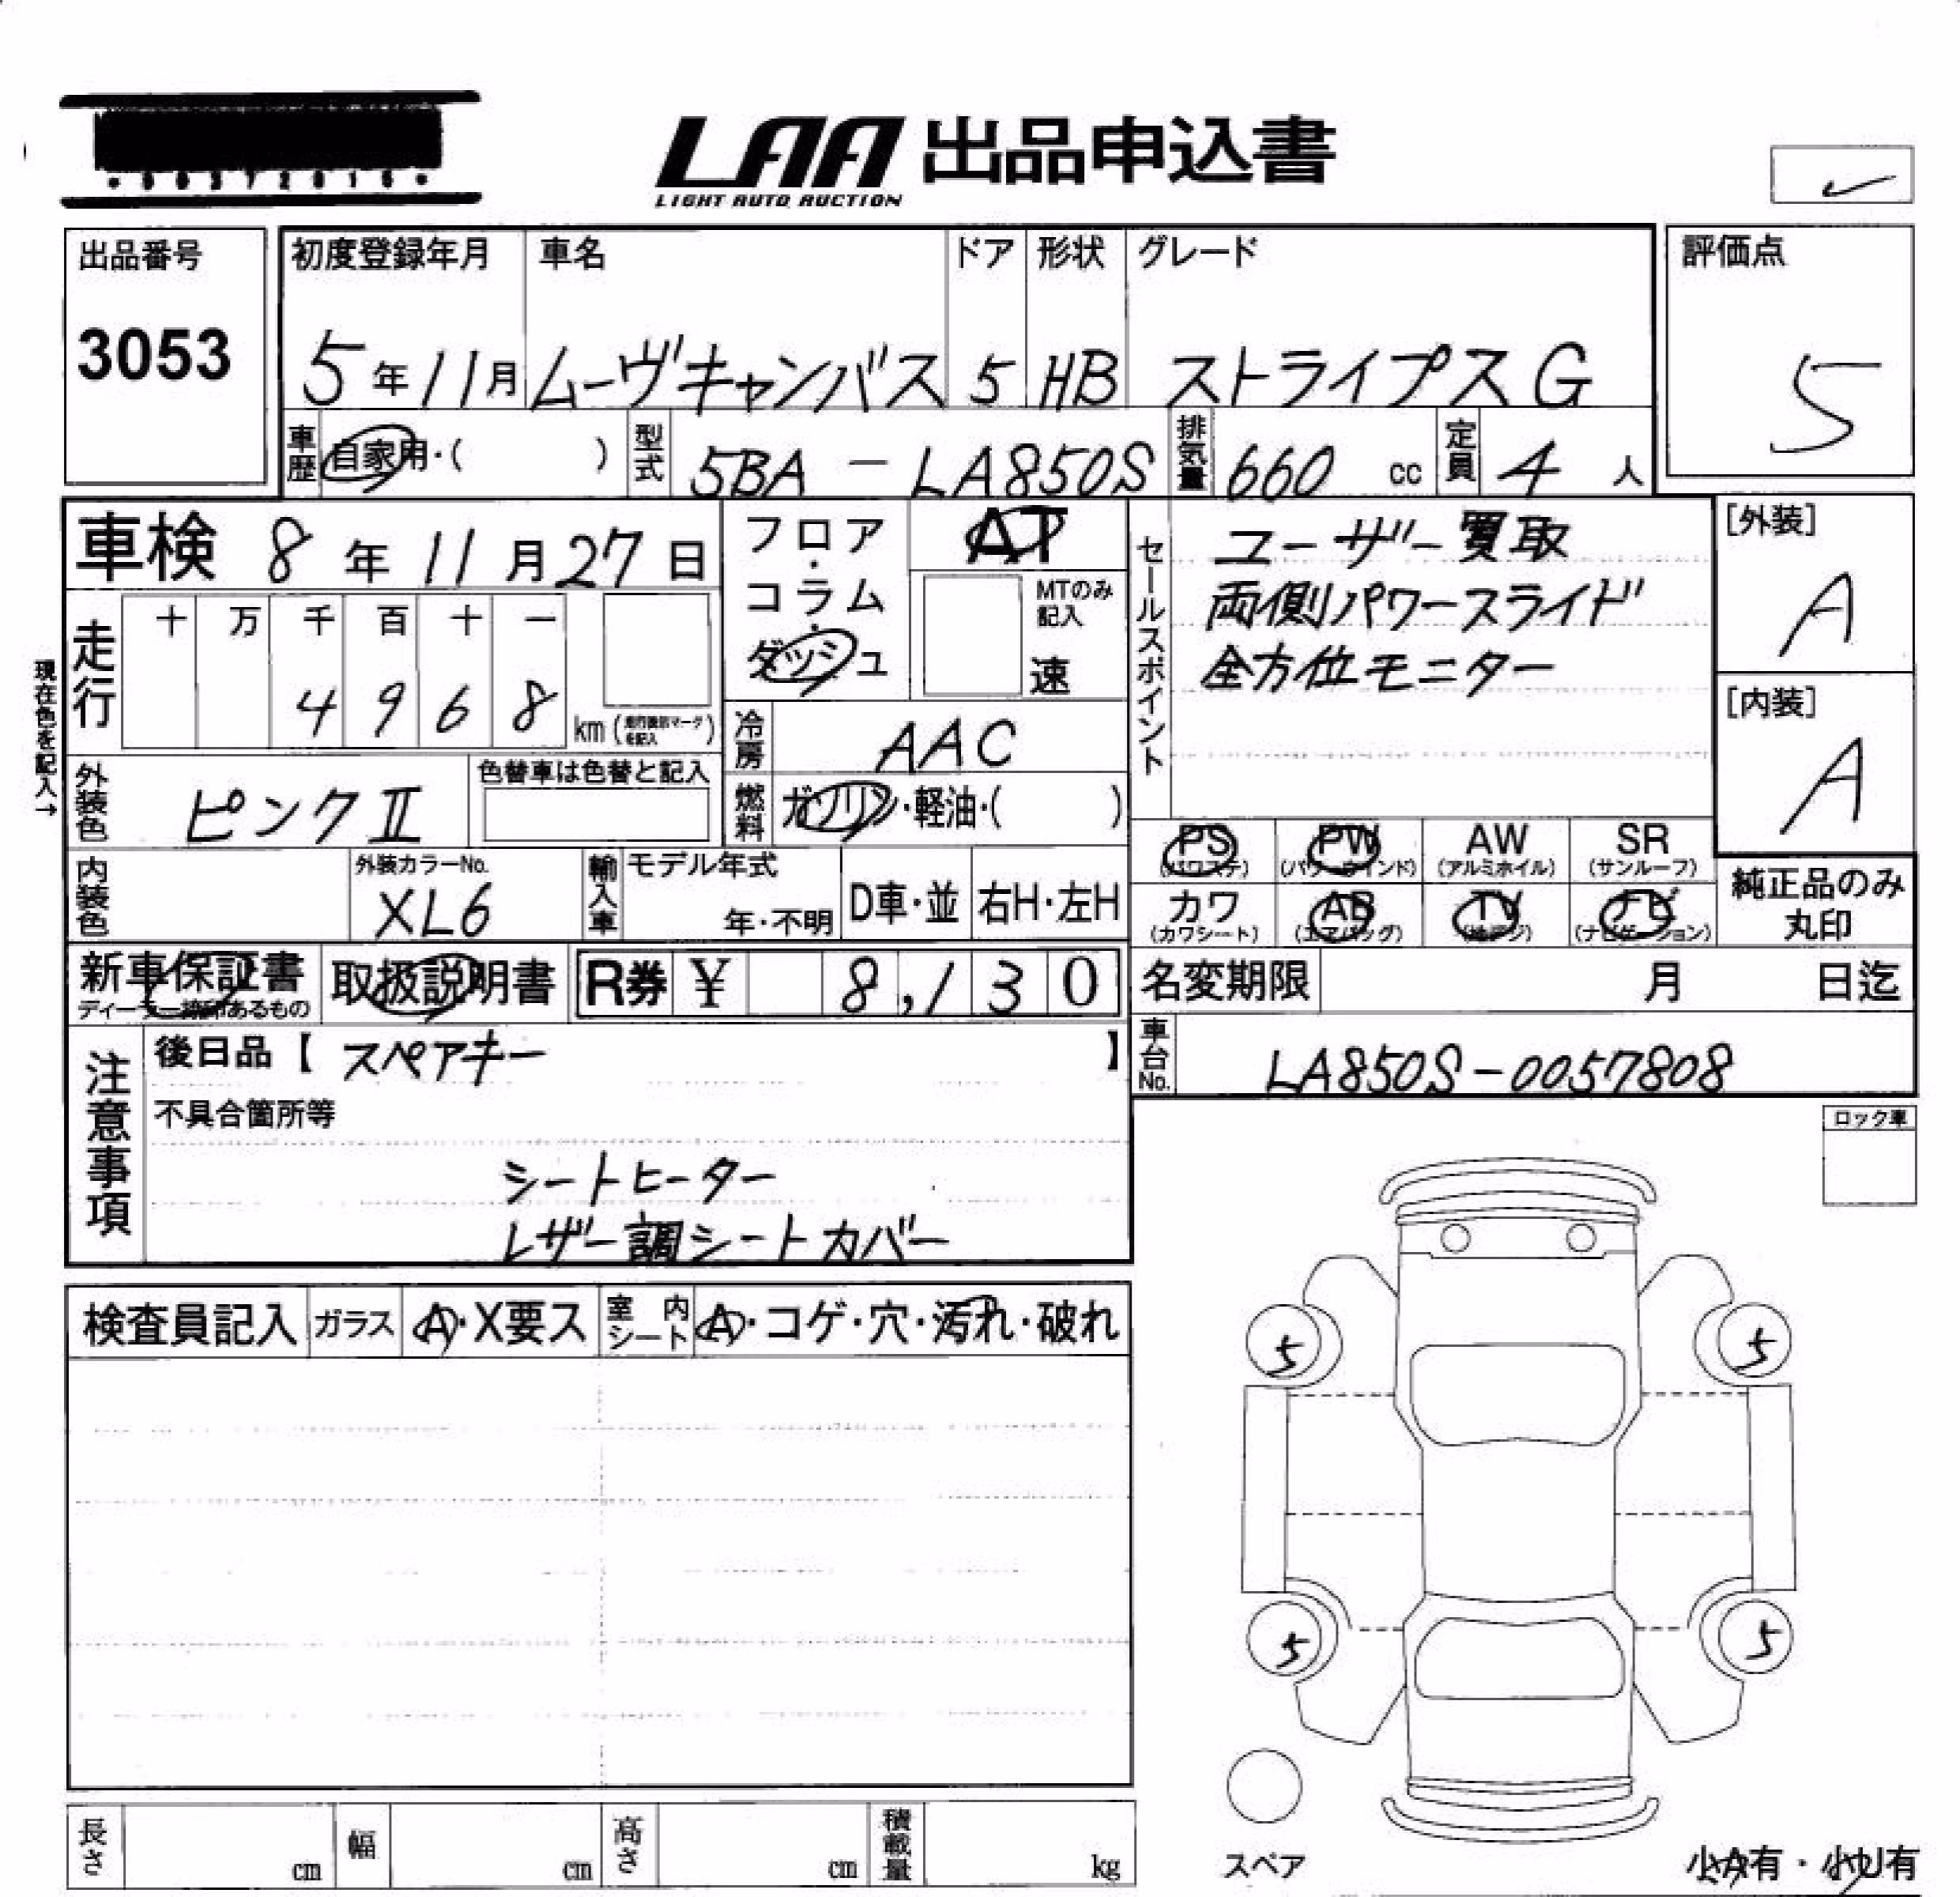 LAA 出品申込書
LIGHT AUTO AUCTION
出品番号
3053
初度登録年月 車名 ドア 形状 グレード
5年11月 ムーヴキャンバス 5 HB ストライプス G
評価点
5
車歴 自家用・( ) 型式 5BA - LA850S 排気量 660 cc 定員 4 人
車検 8年11月27日
フロア・コラム・ダッシュ
AT
MTのみ記入
速
セールスポイント
ユーザー買取
両側パワースライド
全方位モニター
[外装]
A
[内装]
A
現在色を記入→
走行 十 万 千 百 十 一
4 9 6 8 km
冷房 AAC
外装色 ピンクⅡ
色替車は色替と記入
燃料 ガソリン・軽油・( )
PS PW AW SR
(パワステ) (パワーウインド) (アルミホイル) (サンルーフ)
カワ AB TV ナビ
(カワシート) (エアバッグ) (地デジ) (ナビゲーション)
純正品のみ
丸印
内装色
外装カラーNo.
XL6
輸入車 モデル年式
年・不明 D車・並 右H・左H
新車保証書
ディーラー捺印あるもの
取扱説明書 R券 ¥ 8,130
名変期限 月 日迄
車台No. LA850S-0057808
注意事項
後日品【 スペアキー 】
不具合箇所等
シートヒーター
レザー調シートカバー
ロック車
検査員記入 ガラス A・X要ス 室内シート A・コゲ・穴・汚れ・破れ
5 5
5 5
スペア
長さ cm 幅 cm 高さ cm 積載量 kg
小A有・小U有